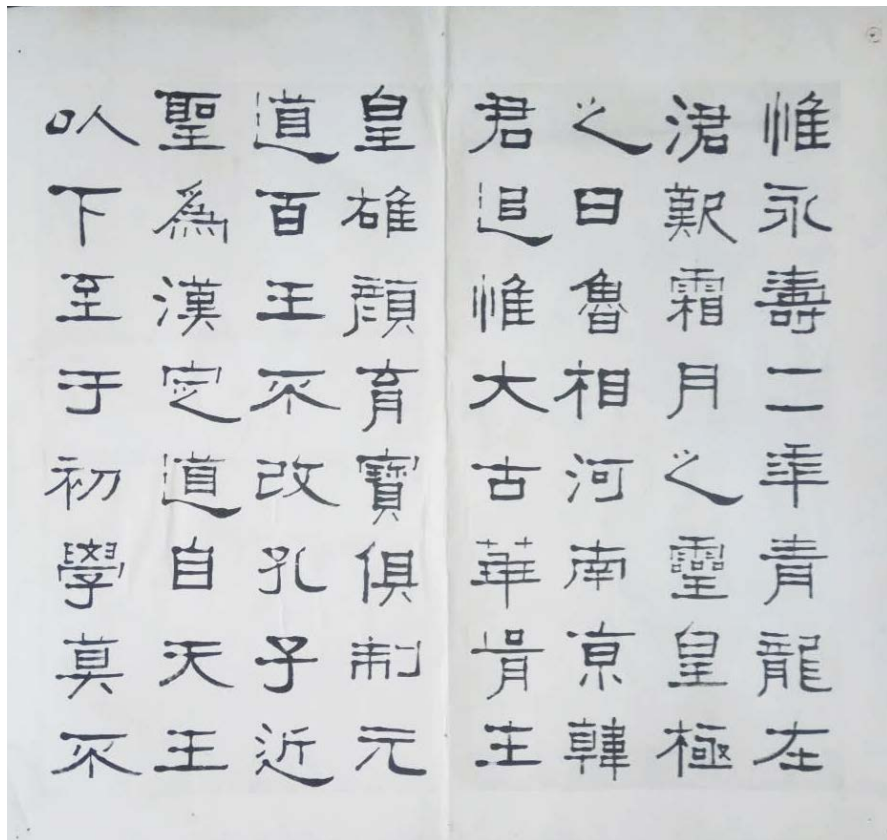 惟永壽二年青龍在
涒歎霜月之靈皇極
之日魯相河南京韓
君追惟大古華胥生
皇雄顏育寶俱制元
道百王不改孔子近
聖爲漢定道自天王
以下至于初學莫不